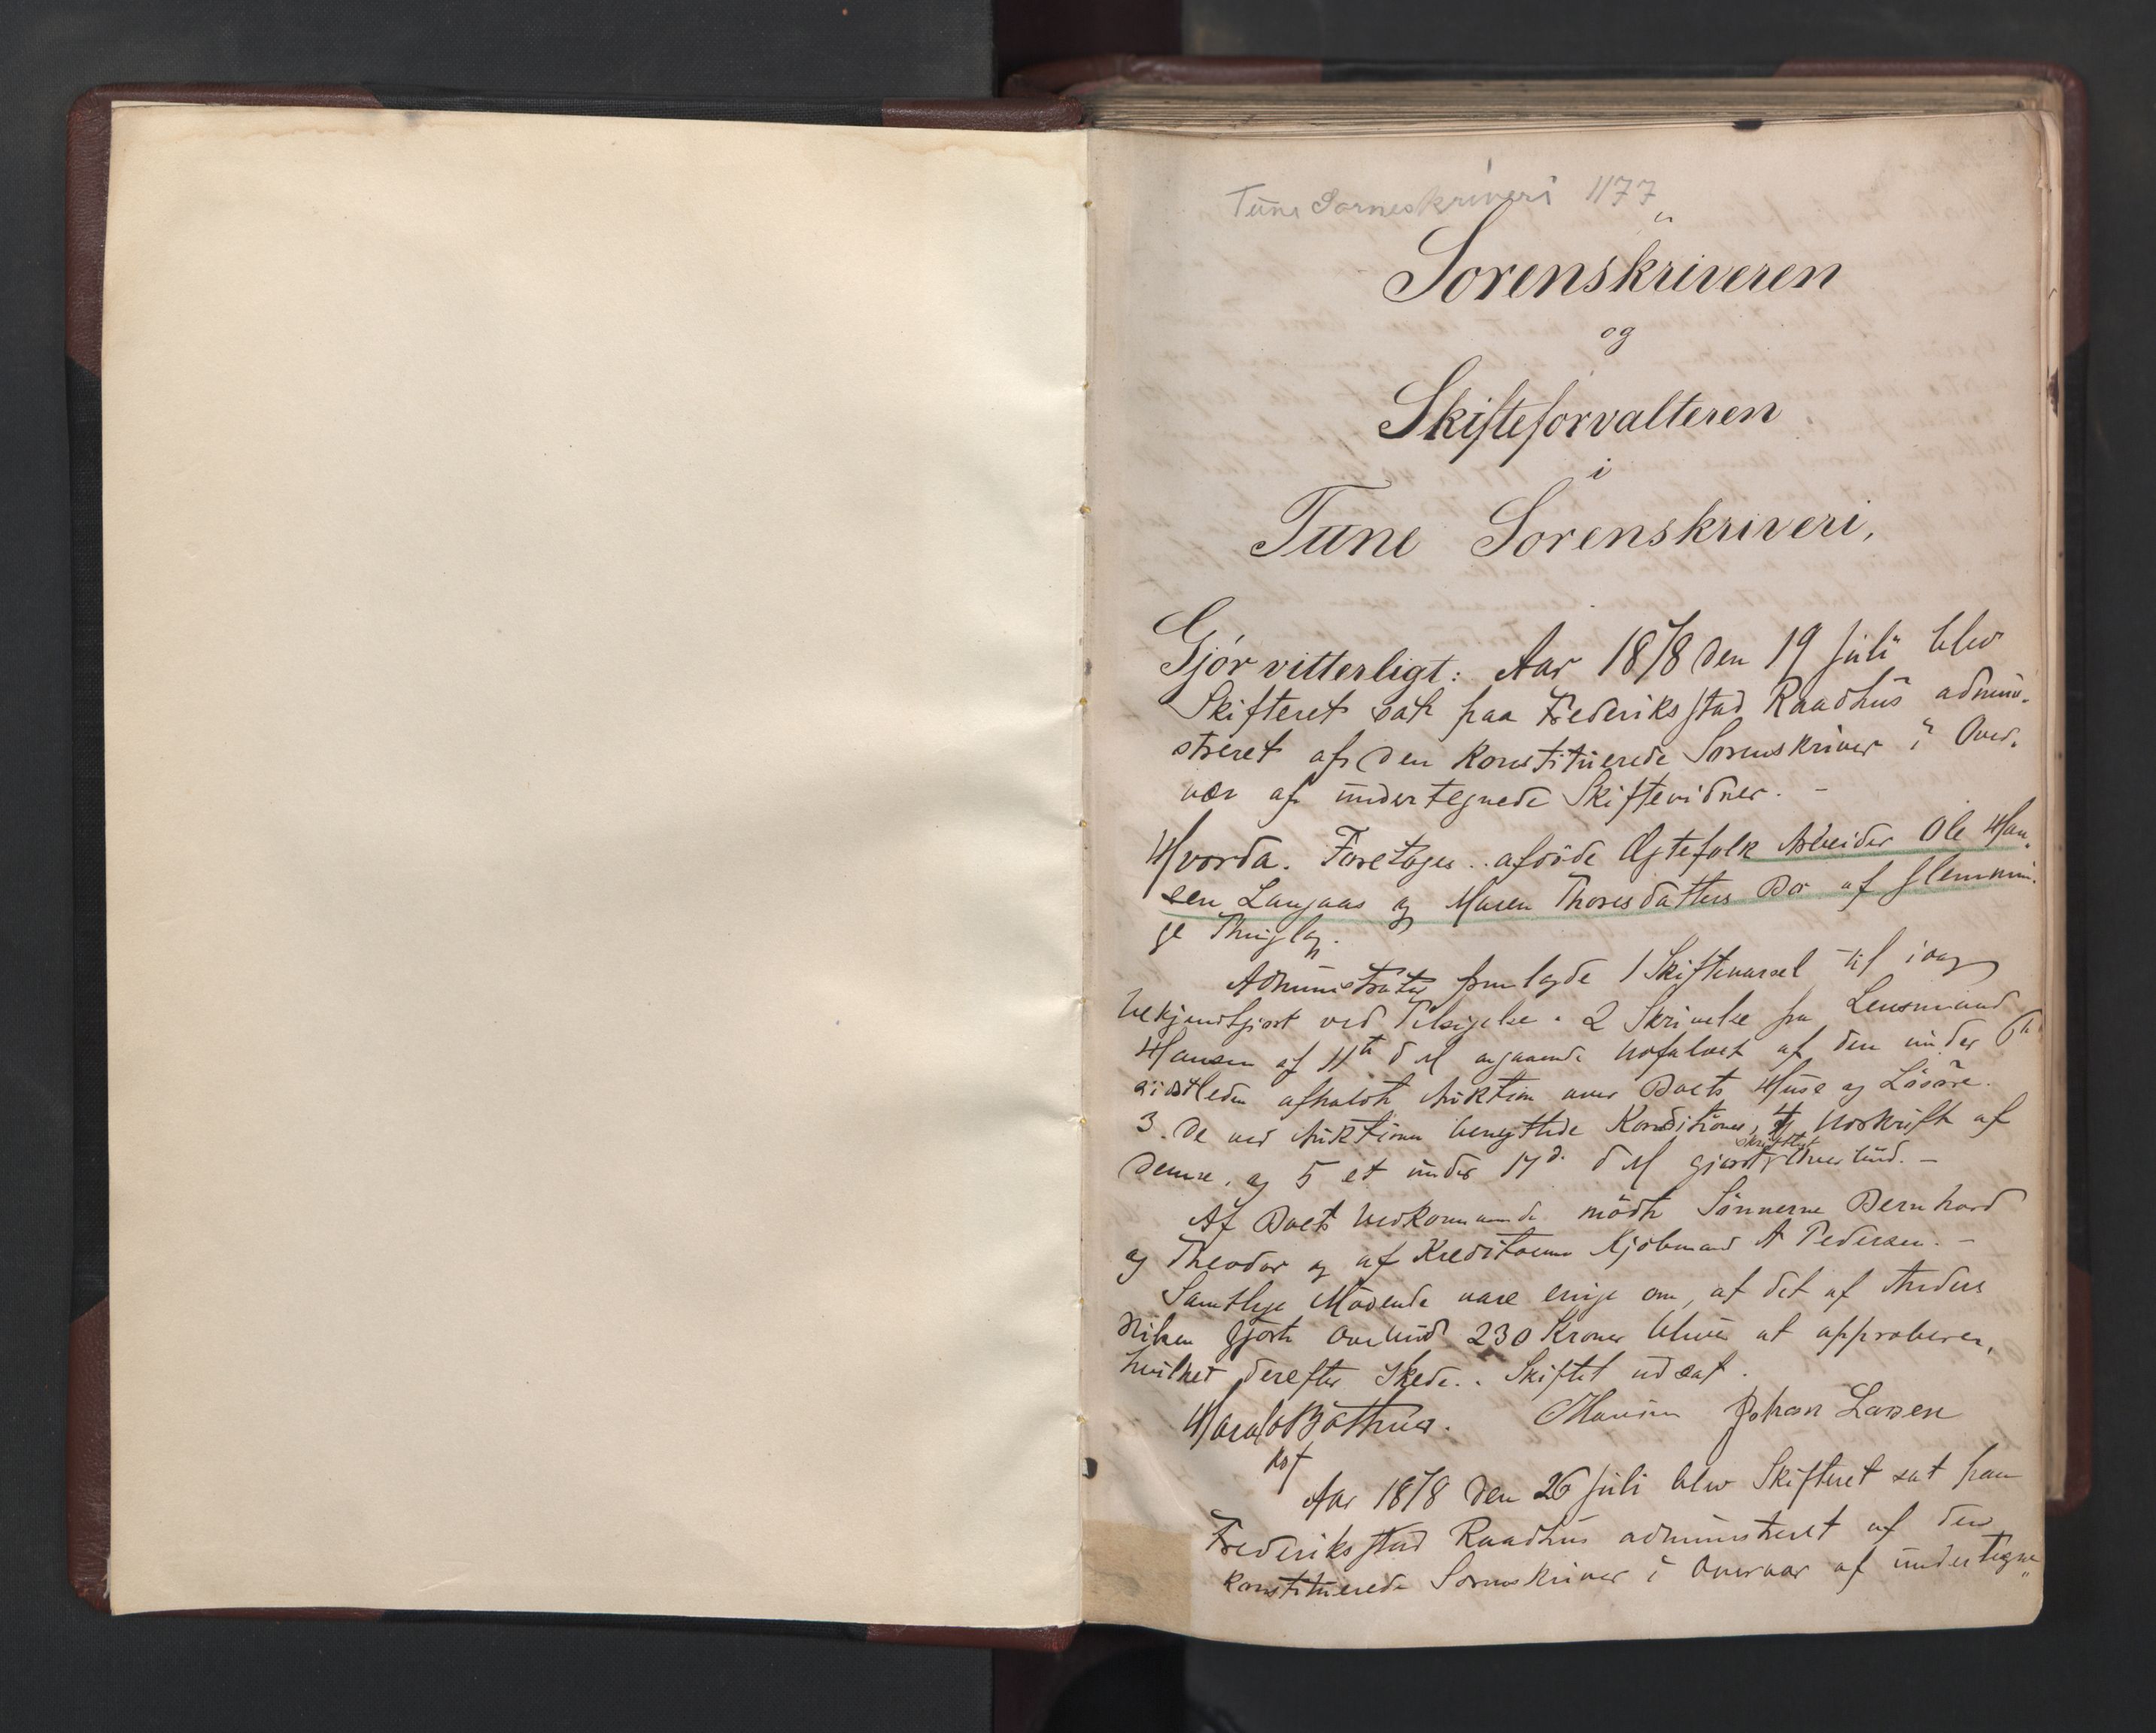 Tune Sorneskriveri 1177
Sorenskriveren
og
Skifteforvalteren
i
Tune Sorenskriveri,
Gjør vitterligt: Aar 1878 den 19 Juli blev
Skifteret sat paa Frederiksstad Raadhus admini-
streret af den konstituerede Sorenskriver i Over-
vær af undertegnede Skiftevidner. -
Hvorda. Foretoges afdøde Ægtefolk Arbeider Ole Han-
sen Langaas og Maren Thoresdatters Bo af Glemmin-
ge Thinglag.
Administrator fremlagde 1 Skiftevarsel til idag
bekjendtgjort ved Tilsigelse. 2 Skrivelse fra Lensmand
Hansen af 11te d M angaaende Udfaldet af den under 6te
sidstleden afholdte Auktion over Boets Huse og Løsøre.
3. de ved Auktionen benyttede Konditioner, 4 Udskrift af
denne, og 5 et under 17d. d M gjort skriftligt Overbud. -
Af Boets Vedkommende mødte Sønnerne Bernhard
og Theodor og af Kreditorerne Kjøbmand A Pedersen. -
Samtlige Mødende vare enige om, at det af Anders
Nilsen gjorte Overbud 230 Kroner bliver at approbere,
hvilket derefter skede. Skiftet udsat.
Harald Bothner. OHansen Johan Larsen
kst
Aar 1878 den 26 Juli blev Skifteret sat paa
Frederiksstad Raadhus administreret af den
konstituerede Sorenskriver i Overvær af undertegne„